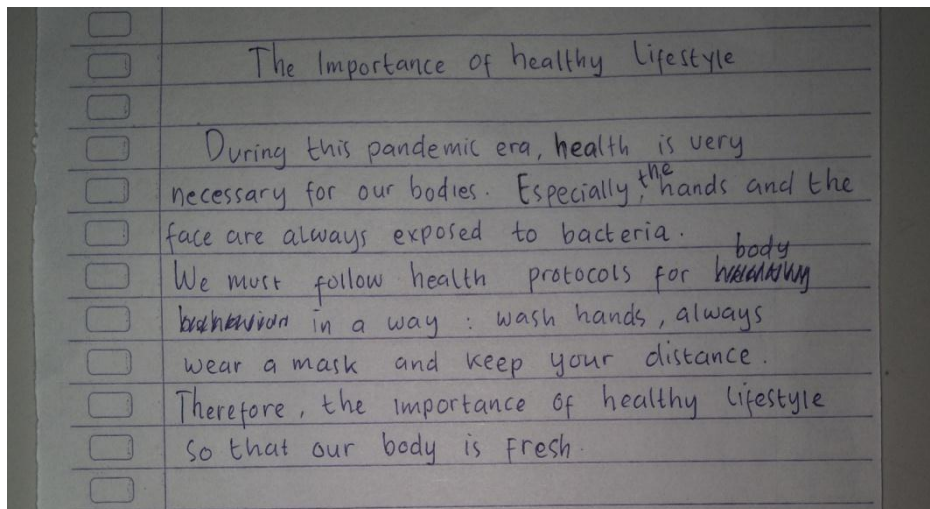 The Importance of healthy lifestyle
During this pandemic era, health is very
necessary for our bodies. Especially, the hands and the
face are always exposed to bacteria.
We must follow health protocols for body
in a way : wash hands, always
wear a mask and keep your distance.
Therefore, the importance of healthy lifestyle
so that our body is fresh.